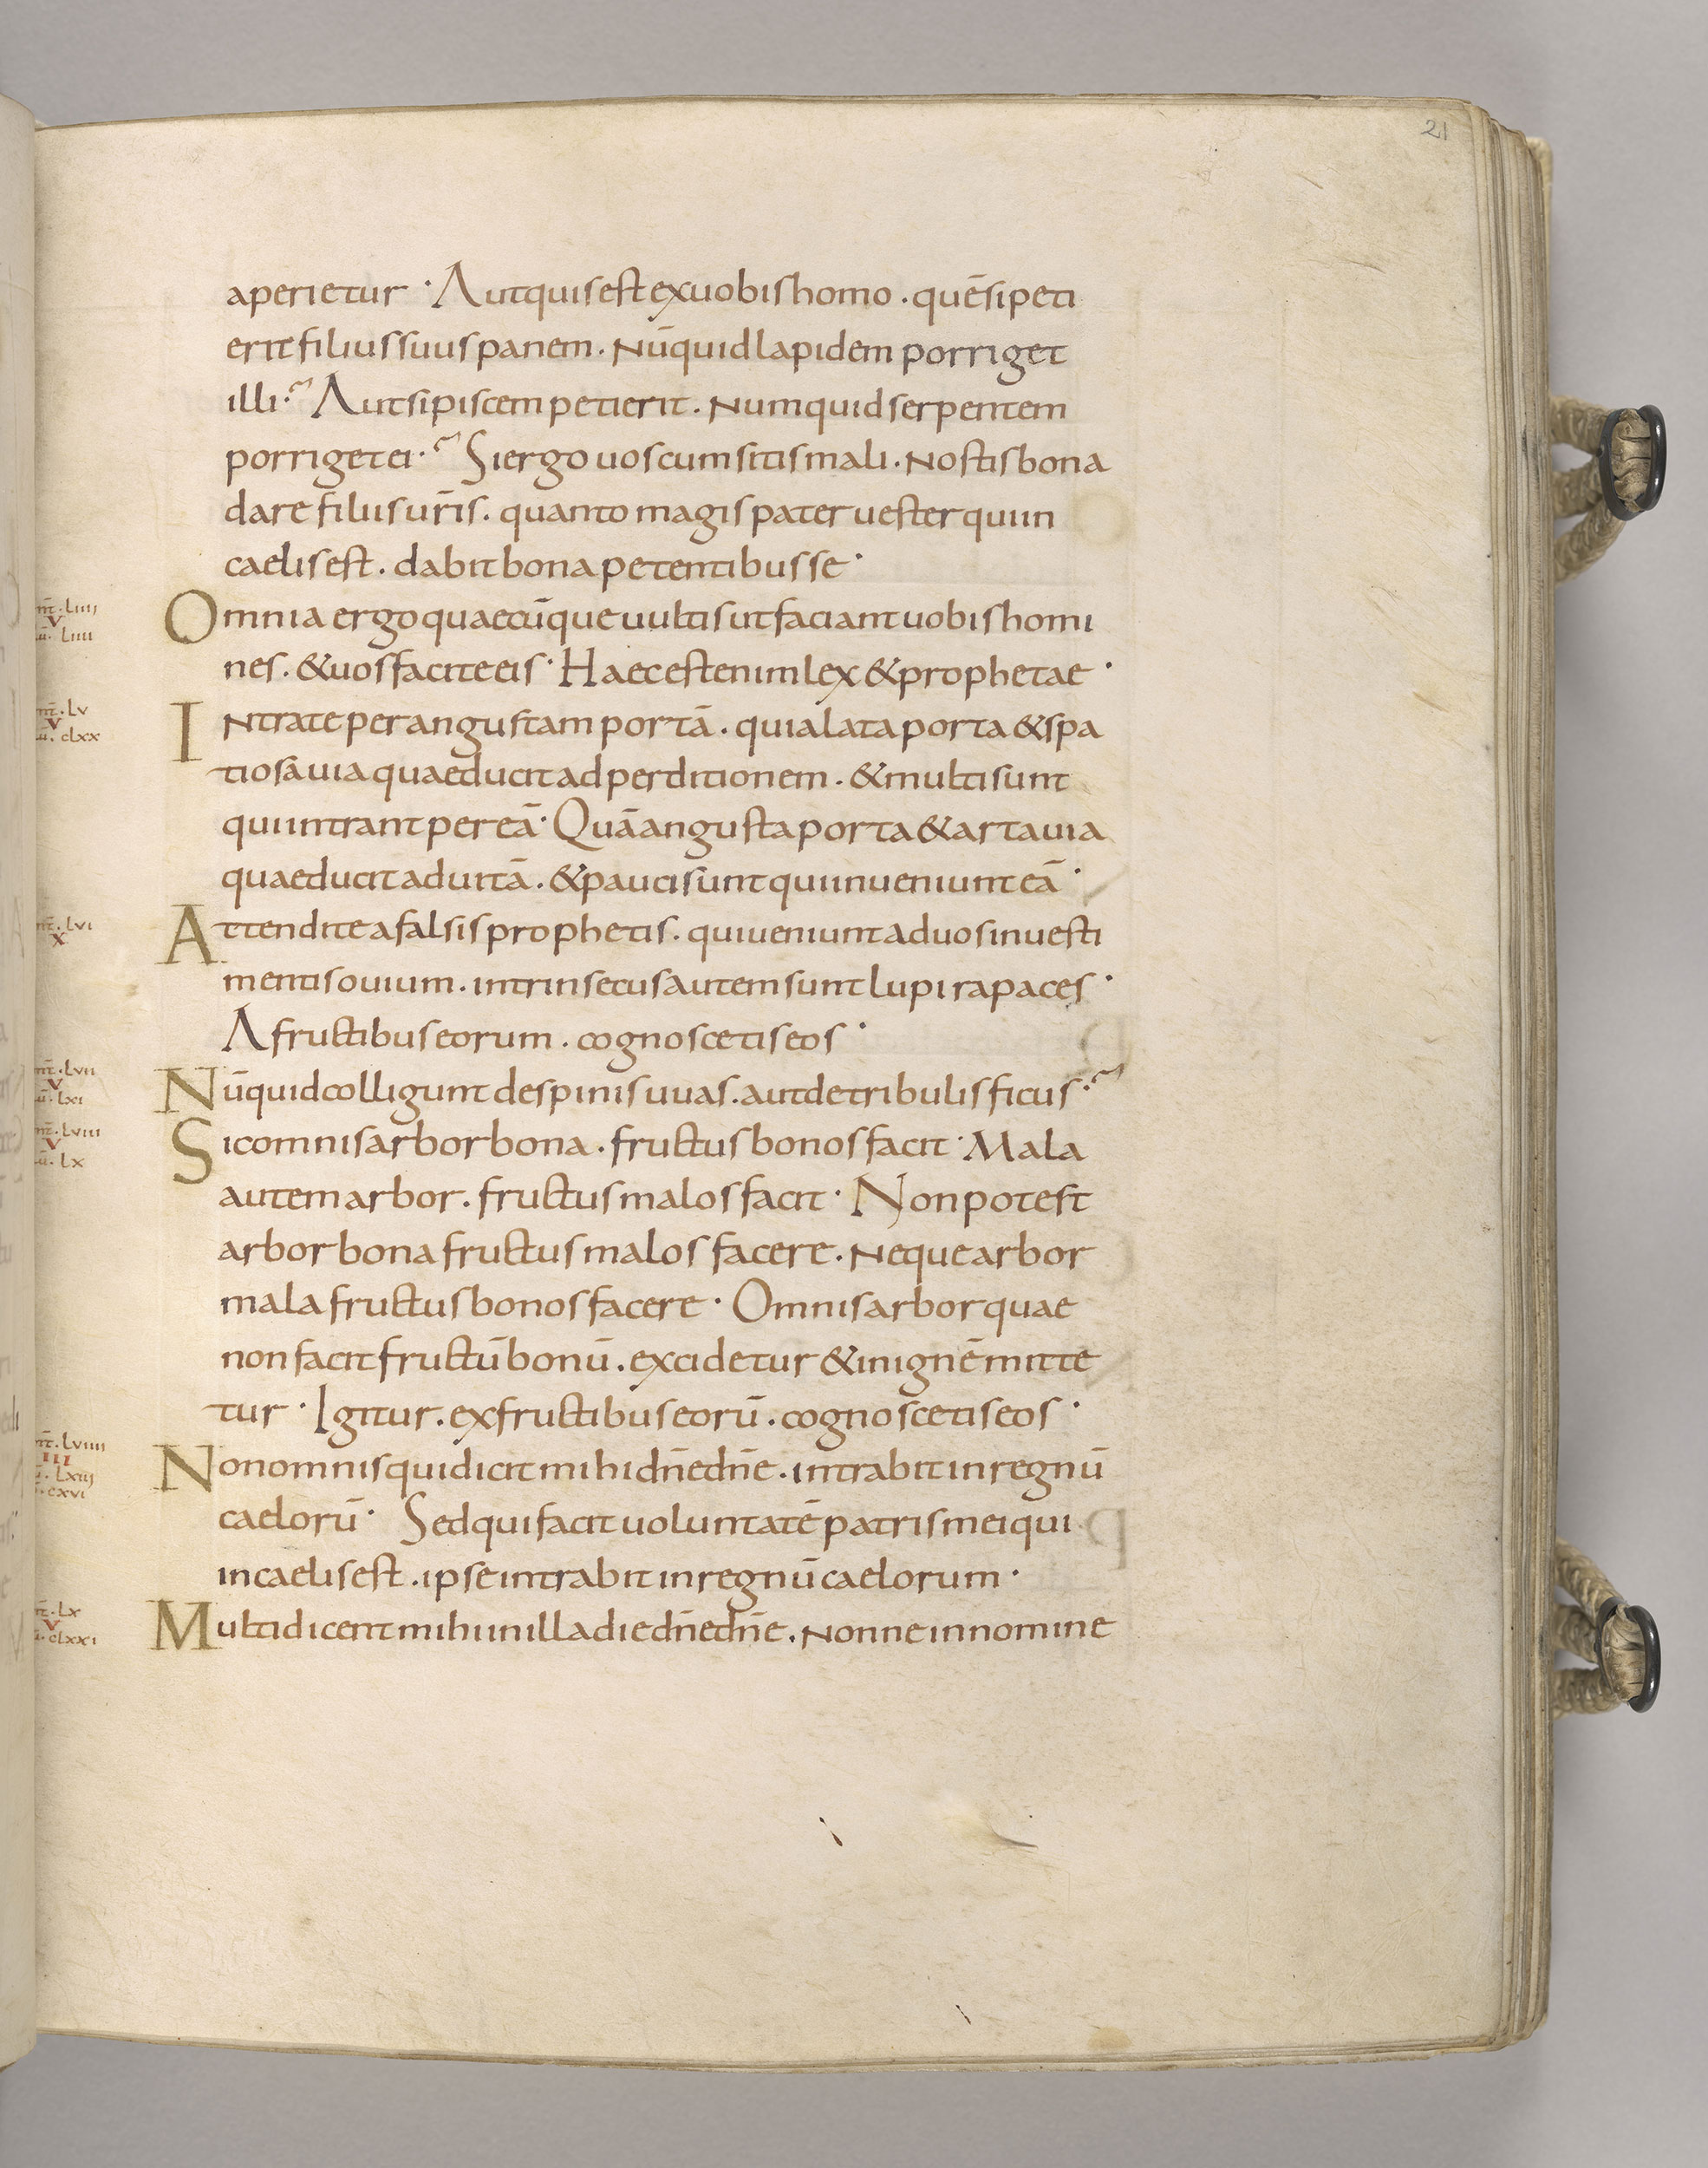 21
aperietur · Aut quis est ex uobis homo . quē si peti
erit filius suus panem . Nūquid lapidem porriget
illi·~ Aut si piscem petierit . Numquid serpentem
porriget ei·~ Si ergo uos cum sitis mali . Nostis bona
dare filiis ur̄is . quanto magis pater uester qui in
caelis est . dabit bona petentibus se ·
mt̄ . Liiii
V
lū . Liiii
Omnia ergo quaecūque uultis ut faciant uobis homi
nes . & uos facite eis · Haec est enim lex & prophetae ·
mt̄ . Lv
V
lū . cLxx
INtrate per angustam portā . quia lata porta & spa
tiosa uia quae ducit ad perditionem . & multi sunt
qui intrant per eā · Quā angusta porta & arta uia
quae ducit ad uitā . & pauci sunt qui inueniunt eā ·
mt̄ . Lvi
X
Attendite a falsis prophetis . qui ueniunt ad uos in uesti
mentis ouium . intrinsecus autem sunt lupi rapaces ·
A fructibus eorum . cognoscetis eos ·
mt̄ . Lvii
V
lū . Lxi
Nūquid colligunt de spinis uuas . aut de tribulis ficus ·~
mt̄ . Lviii
V
lū . Lx
Sic omnis arbor bona . fructus bonos facit · Mala
autem arbor . fructus malos facit · Non potest
arbor bona fructus malos facere . Neque arbor
mala fructus bonos facere · Omnis arbor quae
non facit fructū bonū . excidetur & in ignē mitte
tur · Igitur . ex fructibus eorū . cognoscetis eos ·
mt̄ . Lviiii
III
. Lxiij
. cxvi
Non omnis qui dicit mihi dn̄e dn̄e . intrabit in regnū
caelorū · Sed qui facit uoluntatē patris mei qui
in caelis est . ipse intrabit in regnū caelorum ·
mt̄ . Lx
V
lū . cLxxi
Multi dicent mihi in illa die dn̄e dn̄e . Nonne in nomine